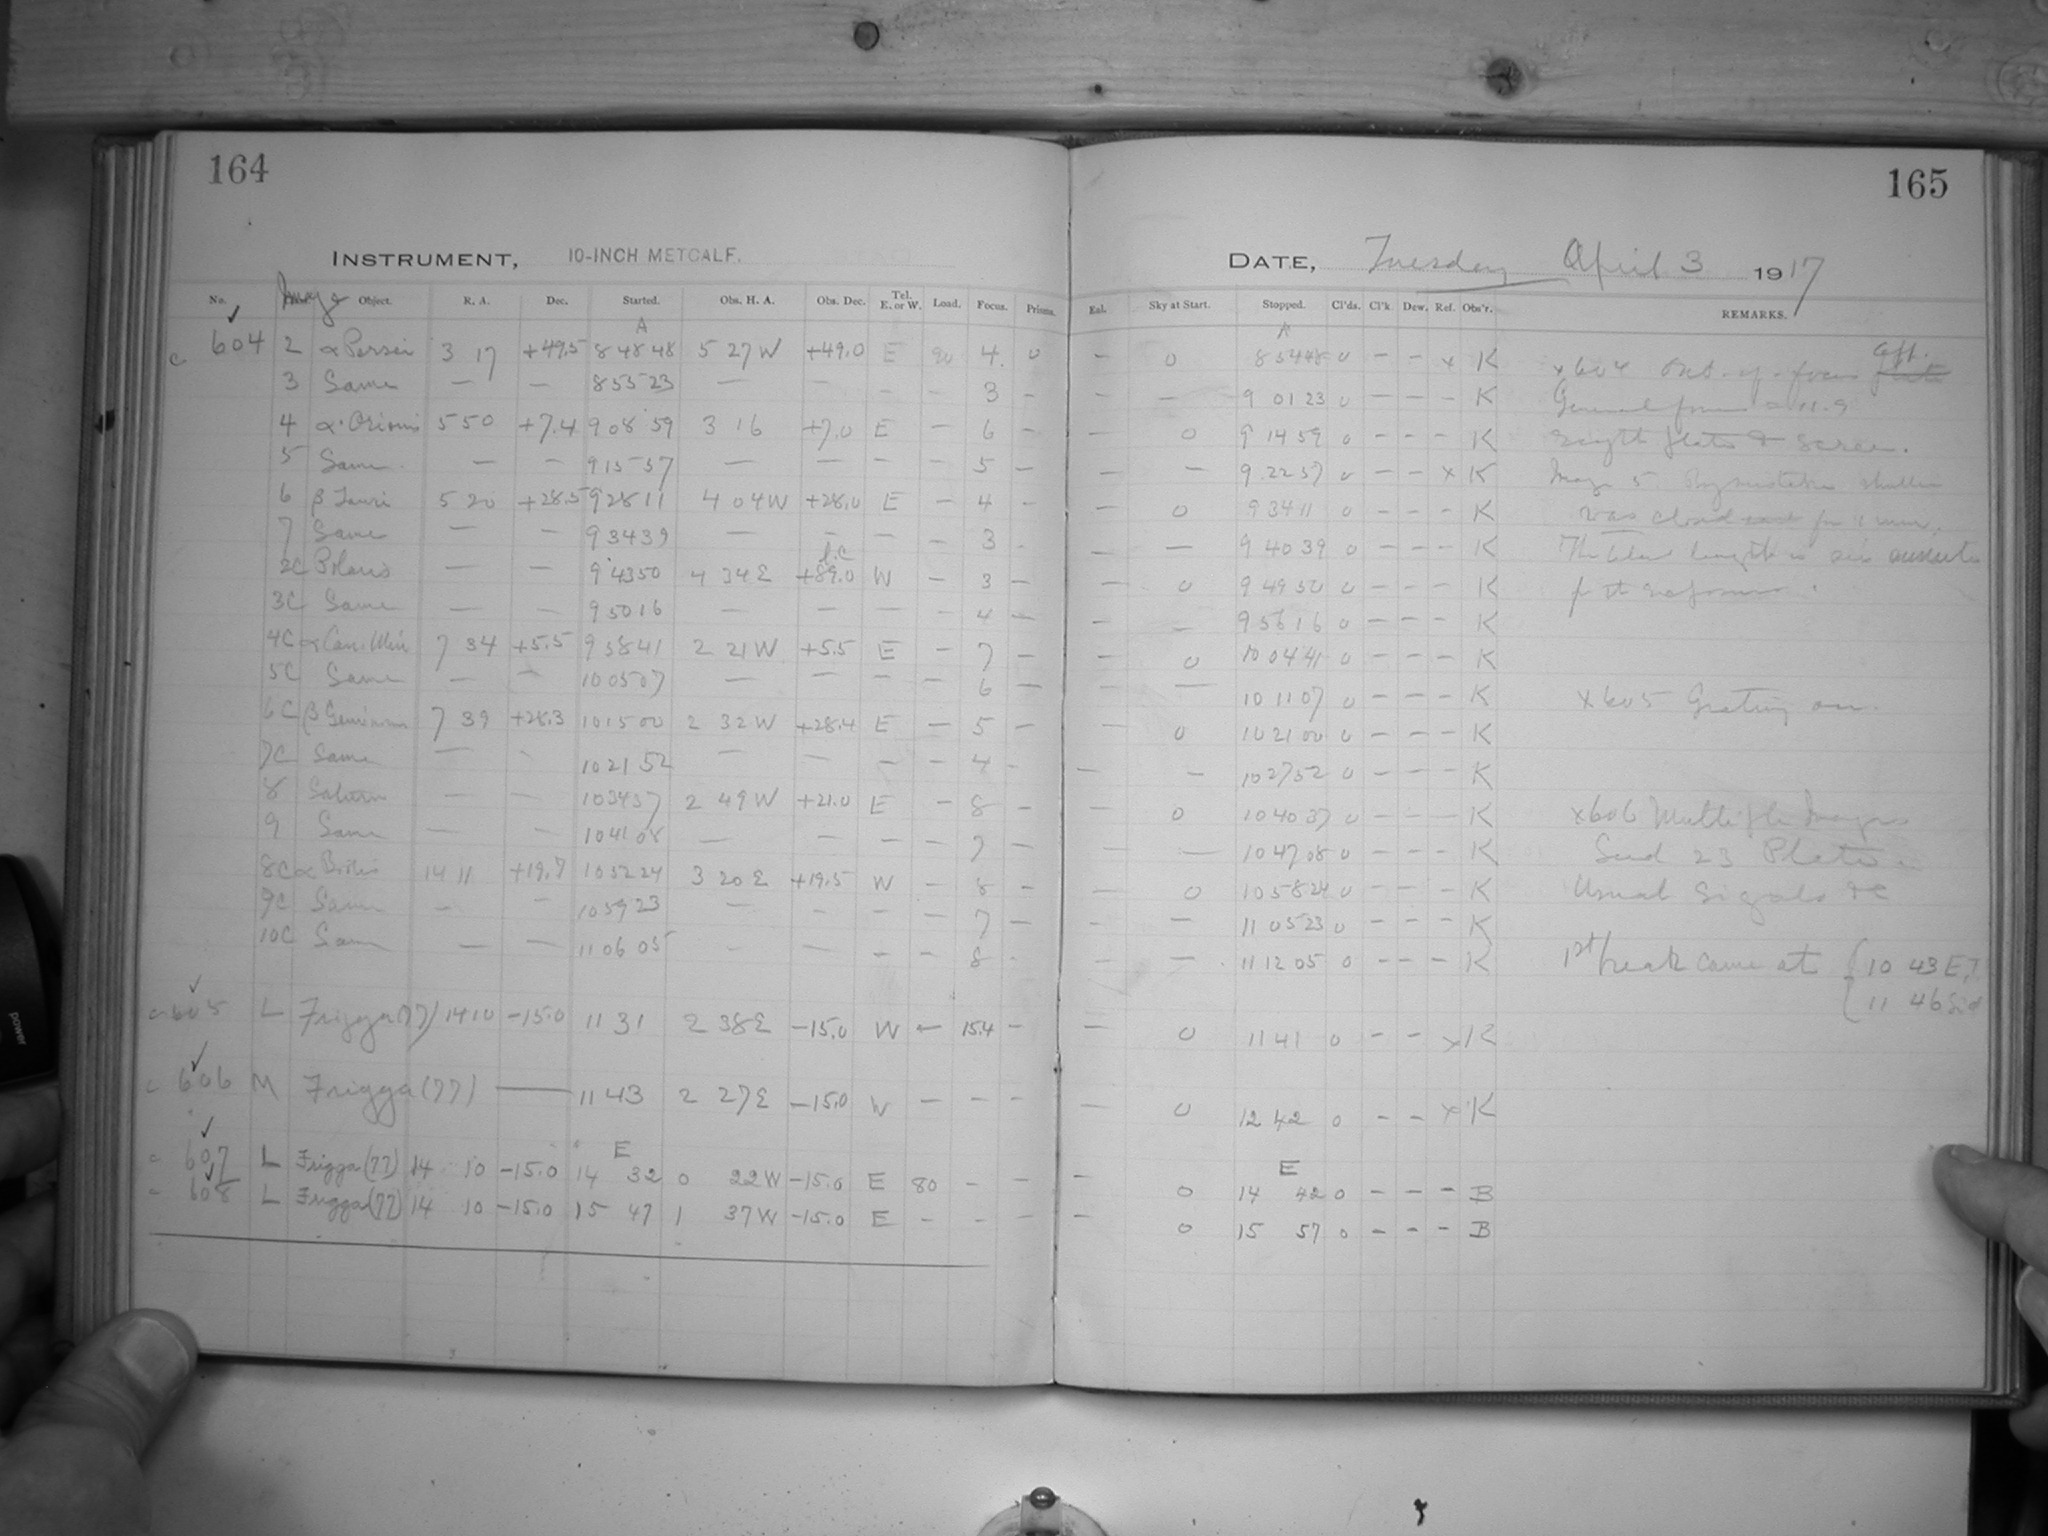 164
INSTRUMENT, 10-INCH METCALF.
No. Image Object. R. A. Dec. Started. Obs. H. A. Obs. Dec. Tel. E. or W. Load. Focus. Prisms.
A
c 604 2 α Persei 3 17 +49.5 8 48 48 5 27 W +49.0 E 90 4. 0
3 Same — — 8 55 23 — — - - 3 -
4 α Orionis 5 50 +7.4 9 08 59 3 16 +7.0 E — 6 -
5 Same — — 9 15 37 — — - - 5 —
6 β Tauri 5 20 +28.5 9 28 11 4 04 W +28.0 E - 4 -
7 Same — — 9 34 39 — — - - 3 -
2C Polaris — — 9 43 50 4 34 E +89.0 W - 3 —
3C Same — — 9 50 16 — — - - 4 —
4C α Can. Min 7 34 +5.5 9 58 41 2 21 W +5.5 E - 7 —
5C Same — — 10 05 07 — — - - 6 —
6C β Geminorum 7 39 +28.3 10 15 00 2 32 W +28.4 E - 5 —
7C Same — - 10 21 52 — — - - 4 -
8 Saturn — — 10 34 37 2 49 W +21.0 E - 8 -
9 Same — — 10 41 08 — — - - 7 -
8C α Bootis 14 11 +19.7 10 52 24 3 20 E +19.5 W - 8 -
9C Same — — 10 59 23 — — - - 7 —
10C Same — — 11 06 05 — — - - 8 -
c 605 L Frigga (77) 14 10 -15.0 11 31 2 38 E -15.0 W - 15.4 -
c 606 M Frigga (77) — 11 43 2 27 E -15.0 W - - -
E
c 607 L Frigga (77) 14 10 -15.0 14 32 0 22 W -15.0 E 80 - -
c 608 L Frigga (77) 14 10 -15.0 15 47 1 37 W -15.0 E - - -
165
DATE, Tuesday April 3 1917
Sky at Start. Stopped. Cl'ds. Cl'k. Dew. Ref. Obs'r. REMARKS.
A
- 0 8 54 48 0 - - x K
- — 9 01 23 0 - - - K
- 0 9 14 59 0 - - - K
- — 9 22 37 0 - - x K
- 0 9 34 11 0 - - - K
- — 9 40 39 0 - - - K
- 0 9 49 50 0 - - - K
- — 9 56 16 0 - - - K
- 0 10 04 41 0 - - - K
- — 10 11 07 0 - - - K
0 10 21 00 0 - - - K
- — 10 27 52 0 - - - K
- 0 10 40 37 0 - - - K
- — 10 47 08 0 - - - K
- 0 10 58 24 0 - - - K
- — 11 05 23 0 - - - K
- — 11 12 05 0 - - - K
- 0 11 41 0 - - x K
- 0 12 42 0 - - x K
E
- 0 14 42 0 - - - B
- 0 15 57 0 - - - B
x 604 Out of focus
General focus = 11.9
Image 5 By mistake shutter
was closed for 1 min.
The total length is six minutes
x 605 Grating on.
x 606 Multiple Images
Seed 23 Plate
Usual Signals &c
1st break came at 10 43 E.T.
11 46 Sid